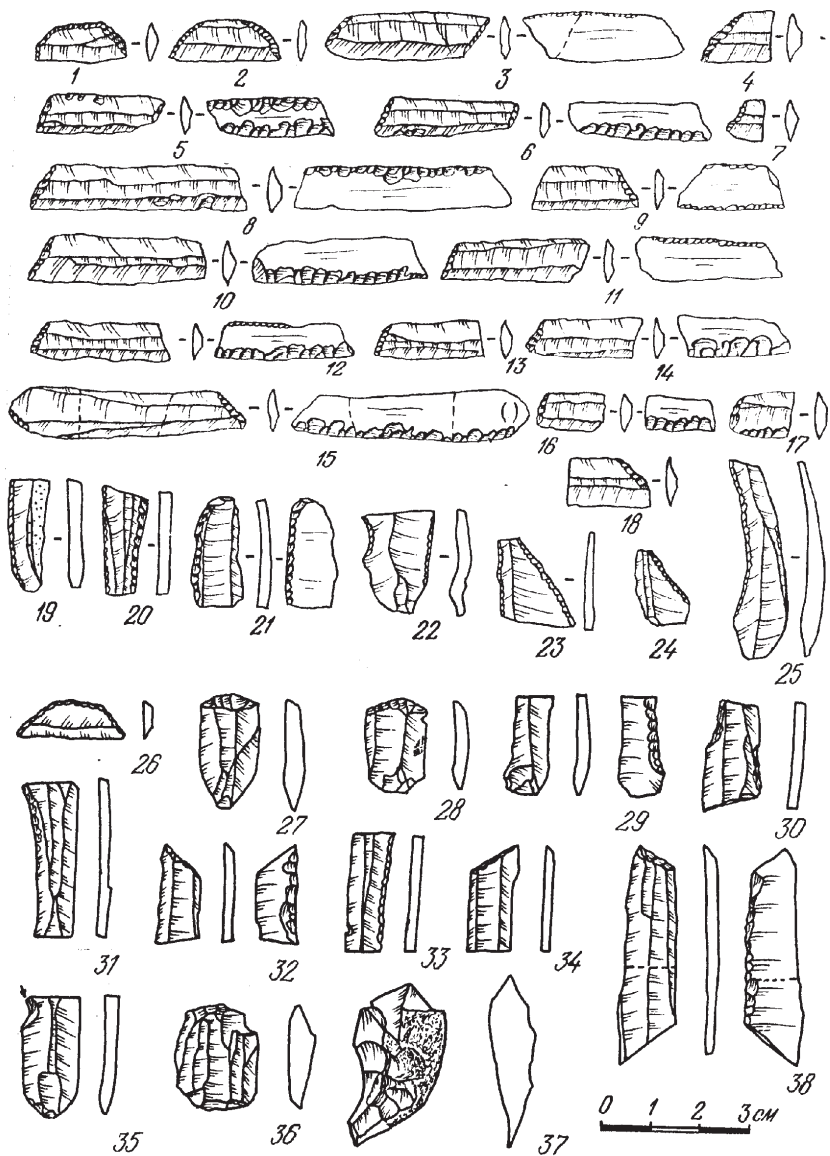 1 2 3 4
5 6 7
8 9
10 11
12 13 14
15 16 17
18
19 20 21 22 23 24 25
26 27 28 29 30
31 32 33 34
0 1 2 3 см
35 36 37 38